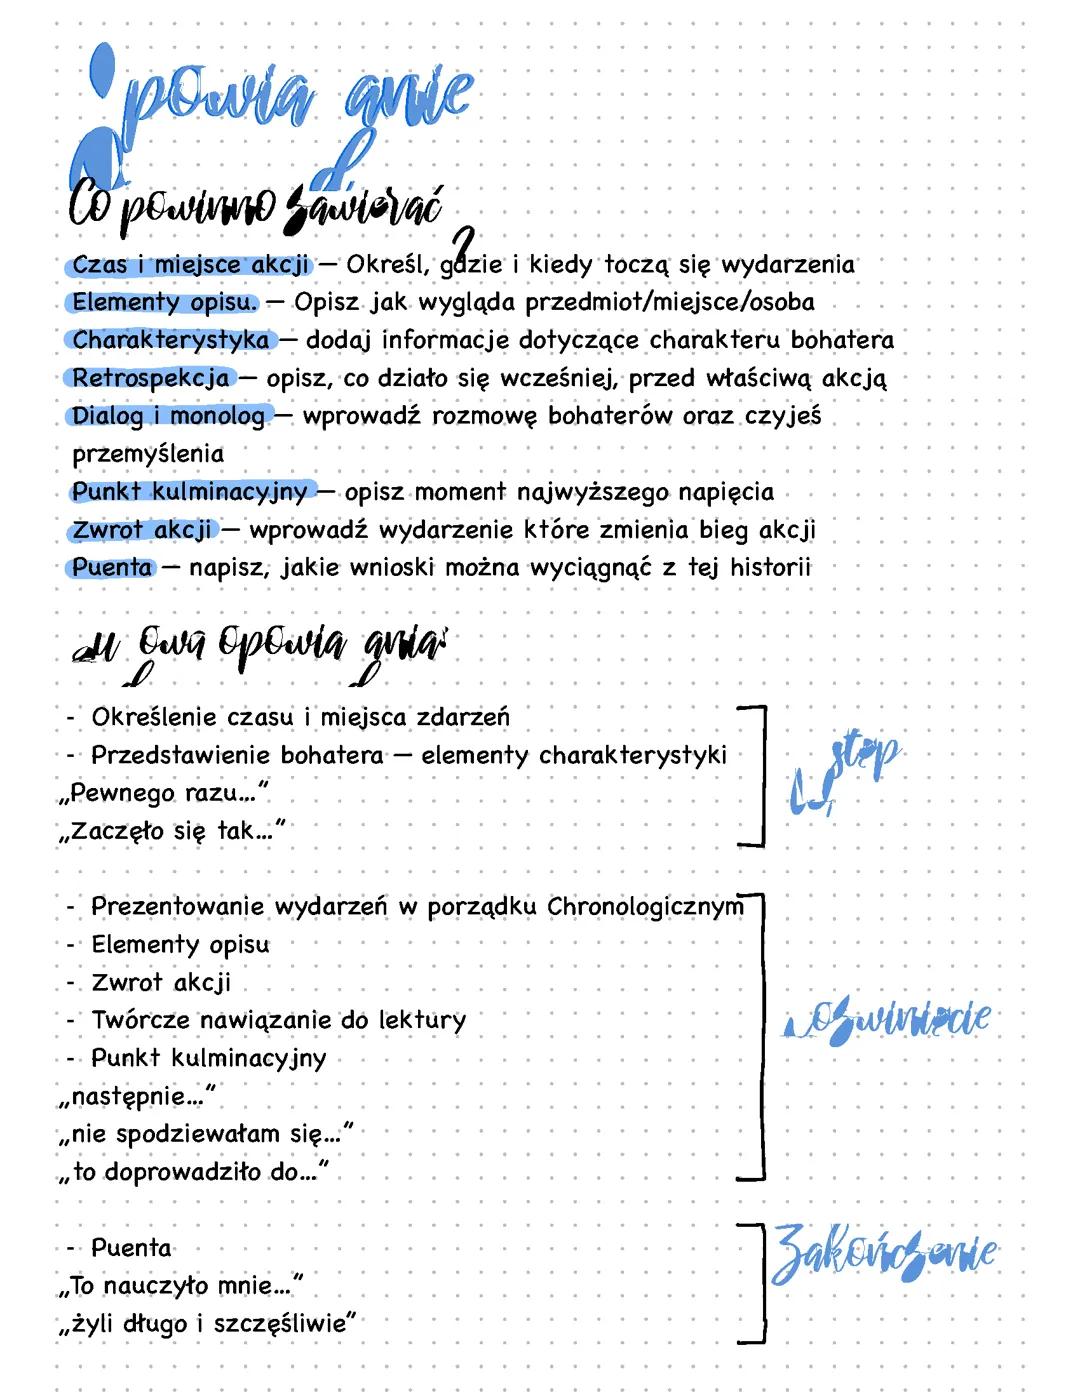 Opowiadanie
Co powinno zawierać?
Czas i miejsce akcji — Określ, gdzie i kiedy toczą się wydarzenia
Elementy opisu. — Opisz jak wygląda przedmiot/miejsce/osoba
Charakterystyka — dodaj informacje dotyczące charakteru bohatera
Retrospekcja — opisz, co działo się wcześniej, przed właściwą akcją
Dialog i monolog — wprowadź rozmowę bohaterów oraz czyjeś
przemyślenia
Punkt kulminacyjny — opisz moment najwyższego napięcia
Zwrot akcji — wprowadź wydarzenie które zmienia bieg akcji
Puenta — napisz, jakie wnioski można wyciągnąć z tej historii
opowiadania:
- Określenie czasu i miejsca zdarzeń
- Przedstawienie bohatera — elementy charakterystyki
„Pewnego razu..."
„Zaczęło się tak..."
Wstęp
- Prezentowanie wydarzeń w porządku Chronologicznym
- Elementy opisu
- Zwrot akcji
- Twórcze nawiązanie do lektury
- Punkt kulminacyjny
„następnie..."
„nie spodziewałam się..."
„to doprowadziło do..."
Rozwinięcie
- Puenta
„To nauczyło mnie..."
„żyli długo i szczęśliwie"
Zakończenie